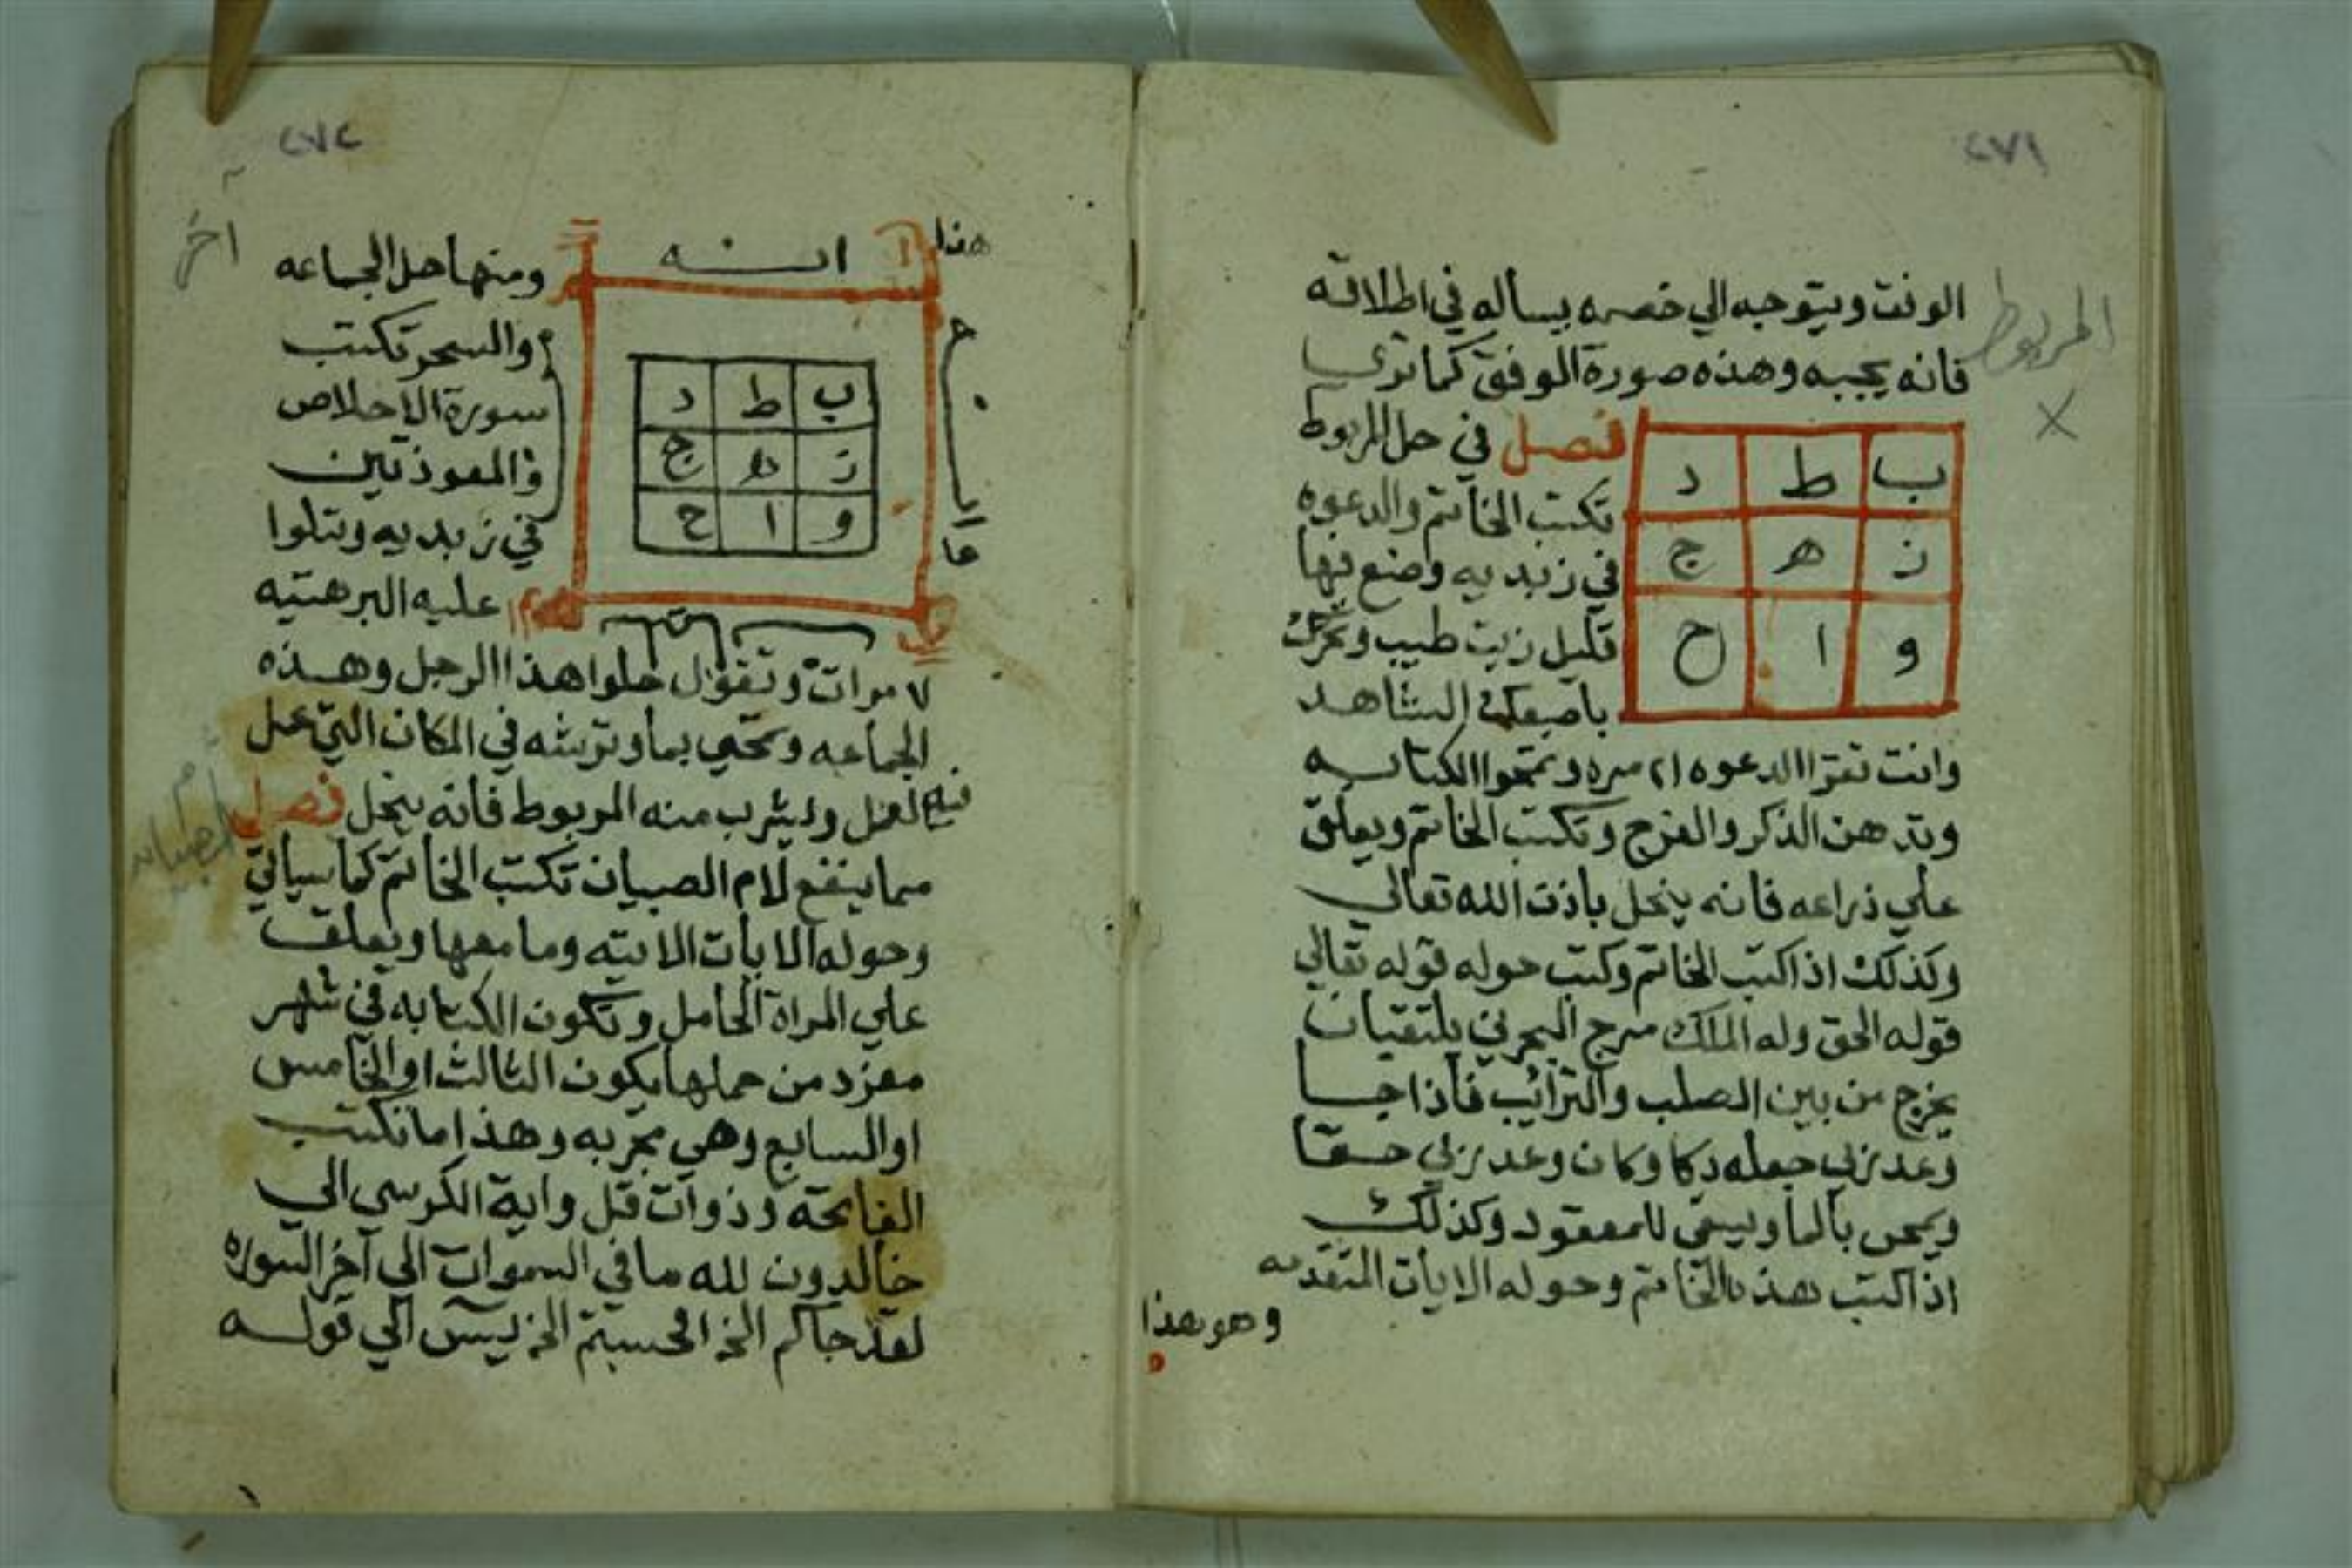 ٢٧١
المربوط
الوفت ويتوجه الي خصمه يساله في اطلاقه
فانه يجيبه وهذه صورة الوفق كما تري
ب ط د
ز ه ج
و ا ح
فصل في حل المربوط
تكتب الخاتم والدعوه
في زبديه وضع فيها
قليل زيت طيب وتحرك
باصبعك الشاهد
وانت تقرا الدعوه ٢١ مره وتمحوا الكتابه
وتدهن الذكر والفرج وتكتب الخاتم ويعلق
علي ذراعه فانه ينحل باذن الله تعالي
وكذلك اذا كتب الخاتم وكتب حوله قوله تعالي
قوله الحق وله الملك مرج البحرين يلتقيان
يخرج من بين الصلب والترائب فاذا جا
وعد ربي جعله دكا وكان وعد ربي حقا
ويمحي بالما ويسقي للمعقود وكذلك
اذا كتب هذا الخاتم وحوله الايات المتقدمه
وهو هذا
٢٧٢
آخر
هذا
ب ط د
ز ه ج
و ا ح
ومنها حل الجماعه
والسحر تكتب
سورة الاخلاص
والمعوذتين
في زبديه وتتلوا
عليه البرهتيه
٧ مرات وتقول حلوا هذا الرجل وهذه
الجماعه وتمحي بما وترشه في المكان التي عمل
فيه العمل وليشرب منه المربوط فانه ينحل فصل
أم الصبيان
مما ينفع لام الصبيان تكتب الخاتم كما سياتي
وحوله الايات الاتيه وما معها ويعلق
علي المراة الحامل وتكون الكتابه في شهر
مفرد من حملها يكون الثالث او الخامس
او السابع وهي مجربه وهذا ما تكتب
الفاتحة وذوات قل واية الكرسي الي
خالدون لله ما في السموات الي آخر السوره
لقد جاكم الخ افحسبتم الخ يس الي قوله